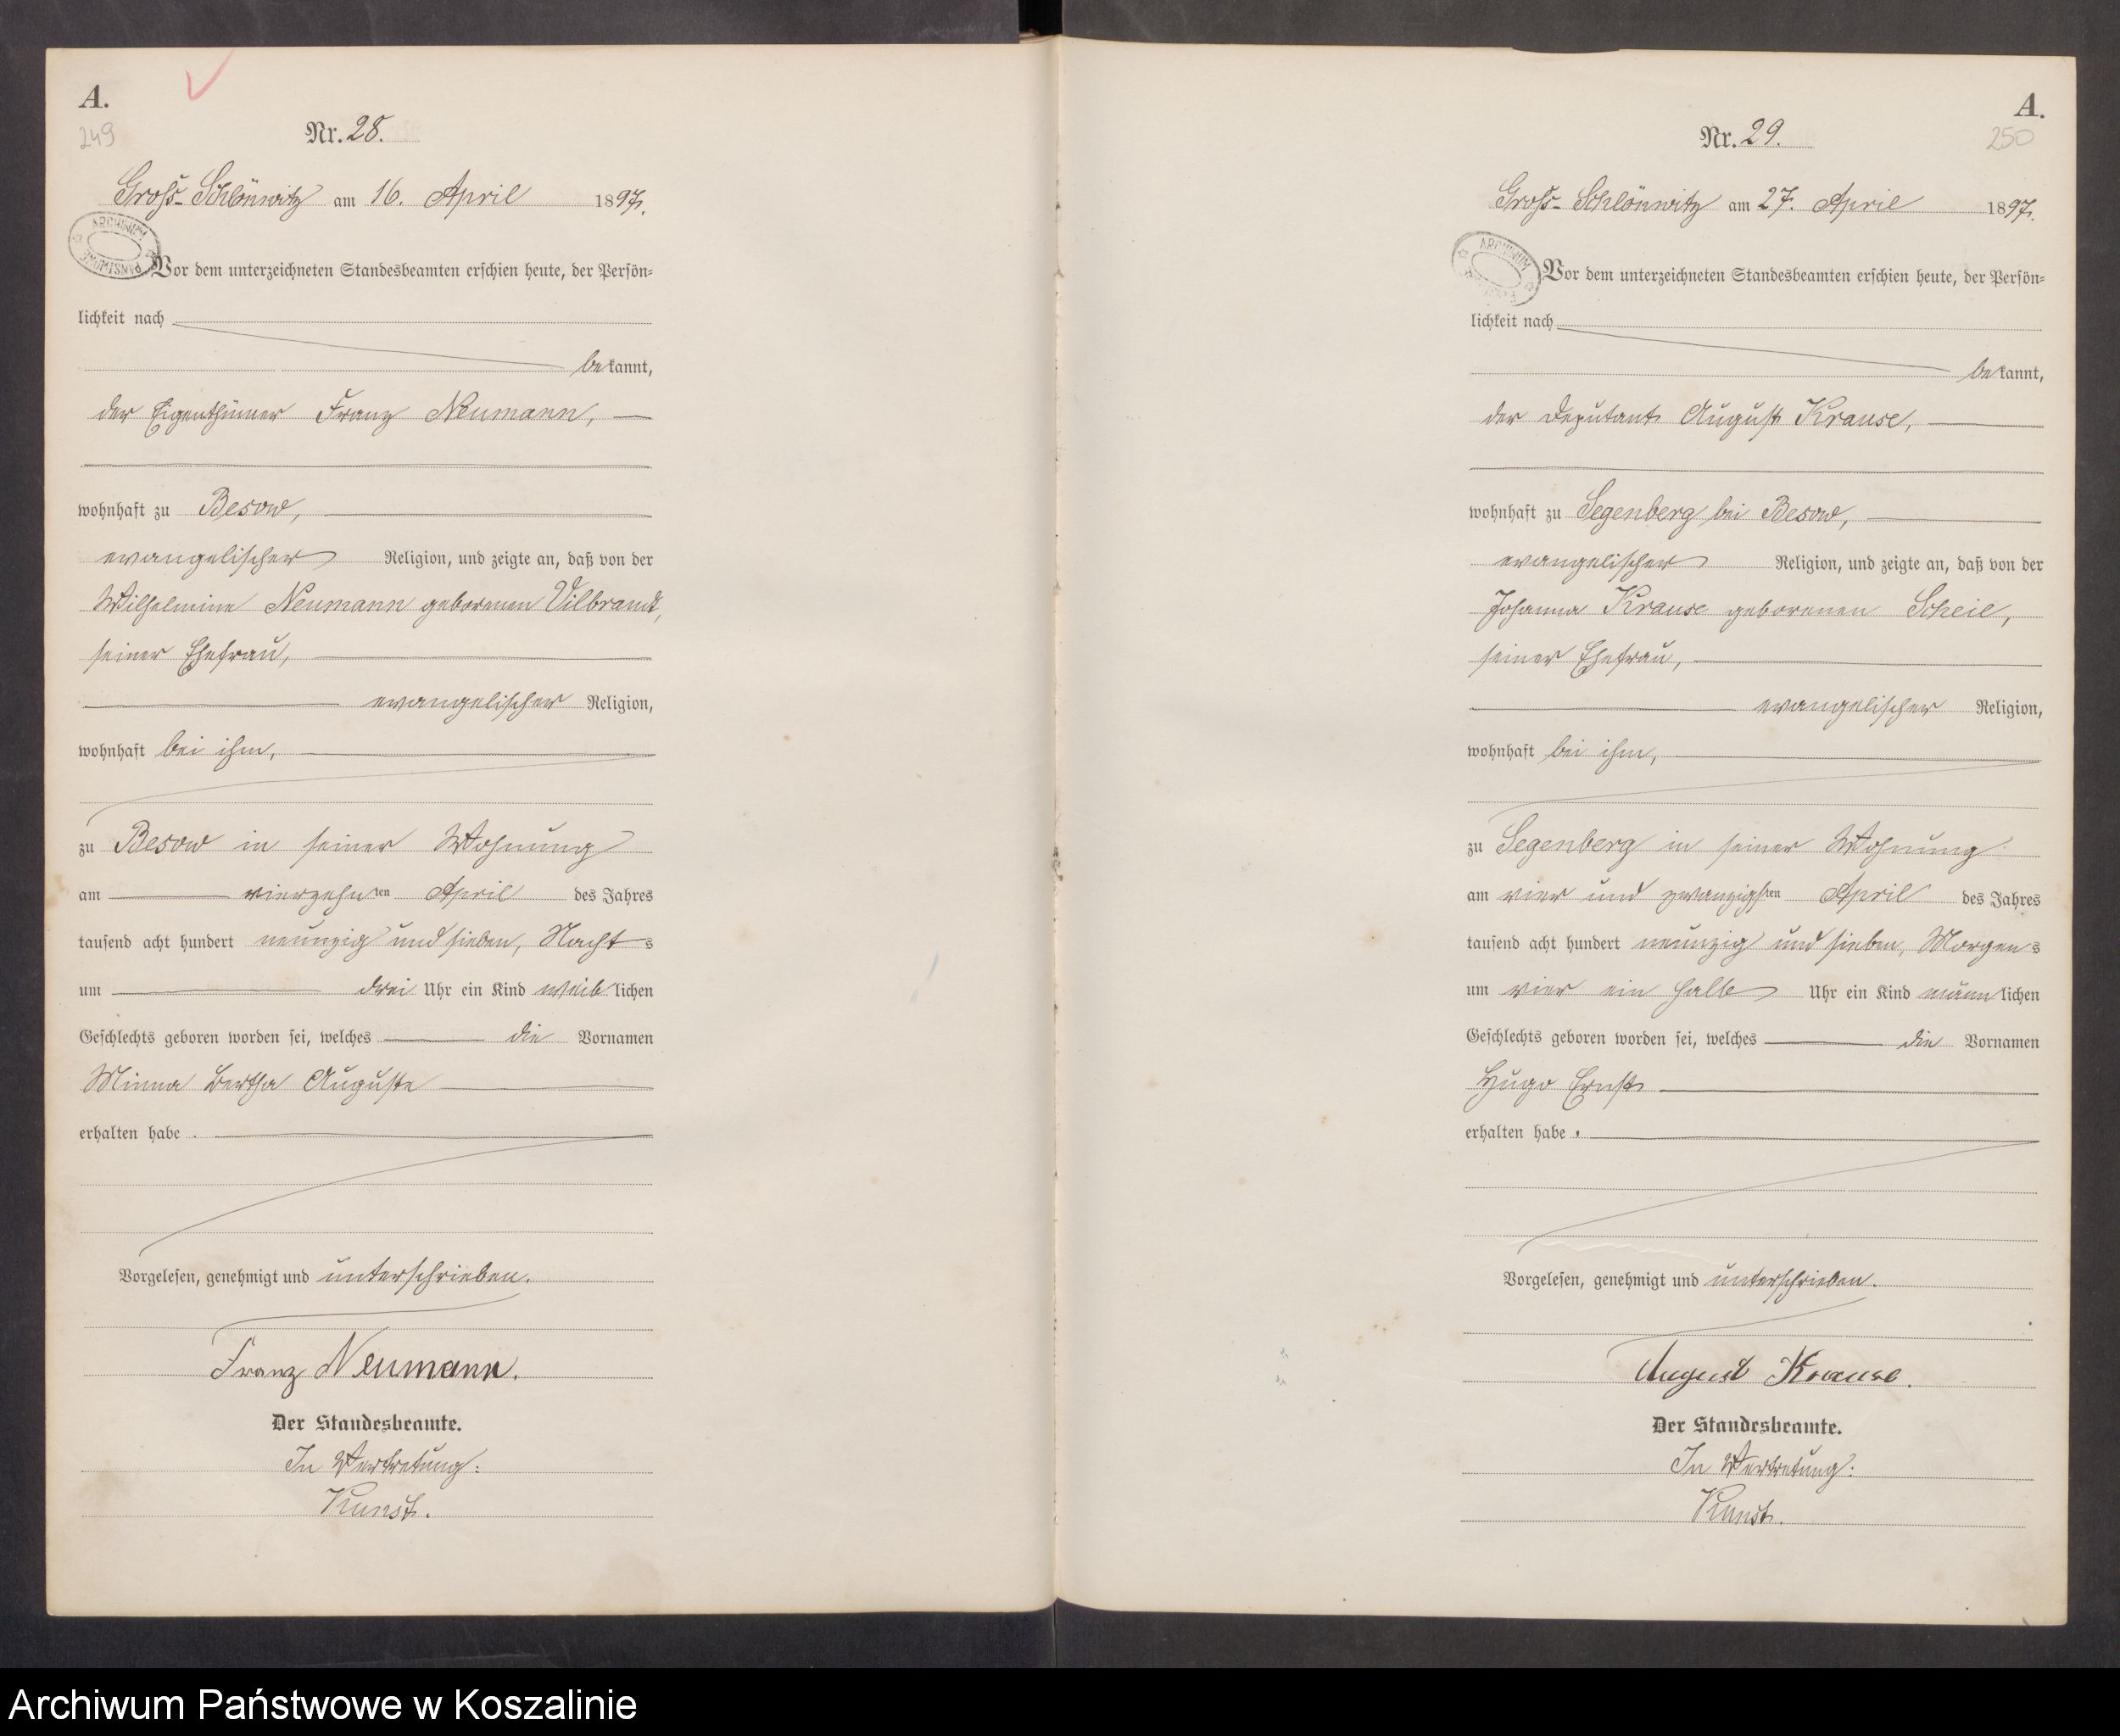 A.
249
Nr. 28.
Groß-Schlönwitz am 16. April 1897.
ARCHIWUM PAŃSTWOWE
Vor dem unterzeichneten Standesbeamten erschien heute, der Persön-
lichkeit nach
bekannt,
der Eigenthümer Franz Neumann,
wohnhaft zu Besow,
evangelischer Religion, und zeigte an, daß von der
Wilhelmine Neumann geborenen Vilbrandt,
seiner Ehefrau,
evangelischer Religion,
wohnhaft bei ihm,
zu Besow in seiner Wohnung
am vierzehnten April des Jahres
tausend acht hundert neunzig und sieben, Nachts
um drei Uhr ein Kind weiblichen
Geschlechts geboren worden sei, welches die Vornamen
Minna Bertha Auguste
erhalten habe.
Vorgelesen, genehmigt und unterschrieben.
Franz Neumann.
Der Standesbeamte.
In Vertretung:
Kunst.
A.
250
Nr. 29.
Groß-Schlönwitz am 27. April 1897.
ARCHIWUM
Vor dem unterzeichneten Standesbeamten erschien heute, der Persön-
lichkeit nach
bekannt,
der Deputant August Krause,
wohnhaft zu Segenberg bei Besow,
evangelischer Religion, und zeigte an, daß von der
Johanna Krause geborenen Scheil,
seiner Ehefrau,
evangelischer Religion,
wohnhaft bei ihm,
zu Segenberg in seiner Wohnung
am vier und zwanzigsten April des Jahres
tausend acht hundert neunzig und sieben, Morgens
um vier ein halb Uhr ein Kind männlichen
Geschlechts geboren worden sei, welches die Vornamen
Hugo Ernst
erhalten habe.
Vorgelesen, genehmigt und unterschrieben.
August Krause.
Der Standesbeamte.
In Vertretung:
Kunst.
Archiwum Państwowe w Koszalinie